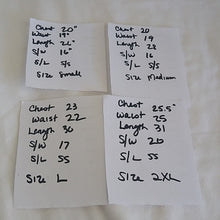 Chest 20"
Waist 19"
Length 26"
S/W 16"
S/L S/S
Size Small
Chest 20
Waist 19
Length 28
S/W 16
S/L S/S
Size Medium
Chest 23
Waist 22
Length 30
S/W 17
S/L SS
Size L
Chest 25.5"
Waist 25
Length 31
S/W 20
S/L SS
Size 2XL